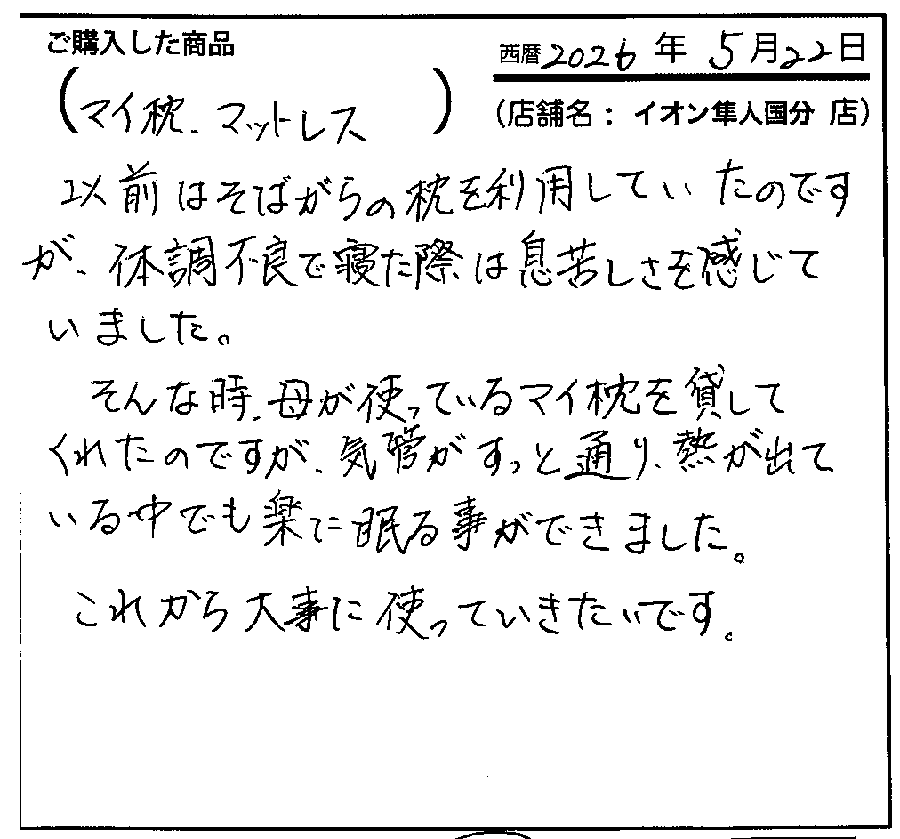 ご購入した商品
西暦2026年 5月22日
(マイ枕、マットレス)
(店舗名：イオン隼人国分 店)
以前はそばがらの枕を利用していたのです
が、体調不良で寝た際は息苦しさを感じて
いました。
そんな時、母が使っているマイ枕を貸して
くれたのですが、気管がすっと通り、熱が出て
いる中でも楽に眠る事ができました。
これから大事に使っていきたいです。